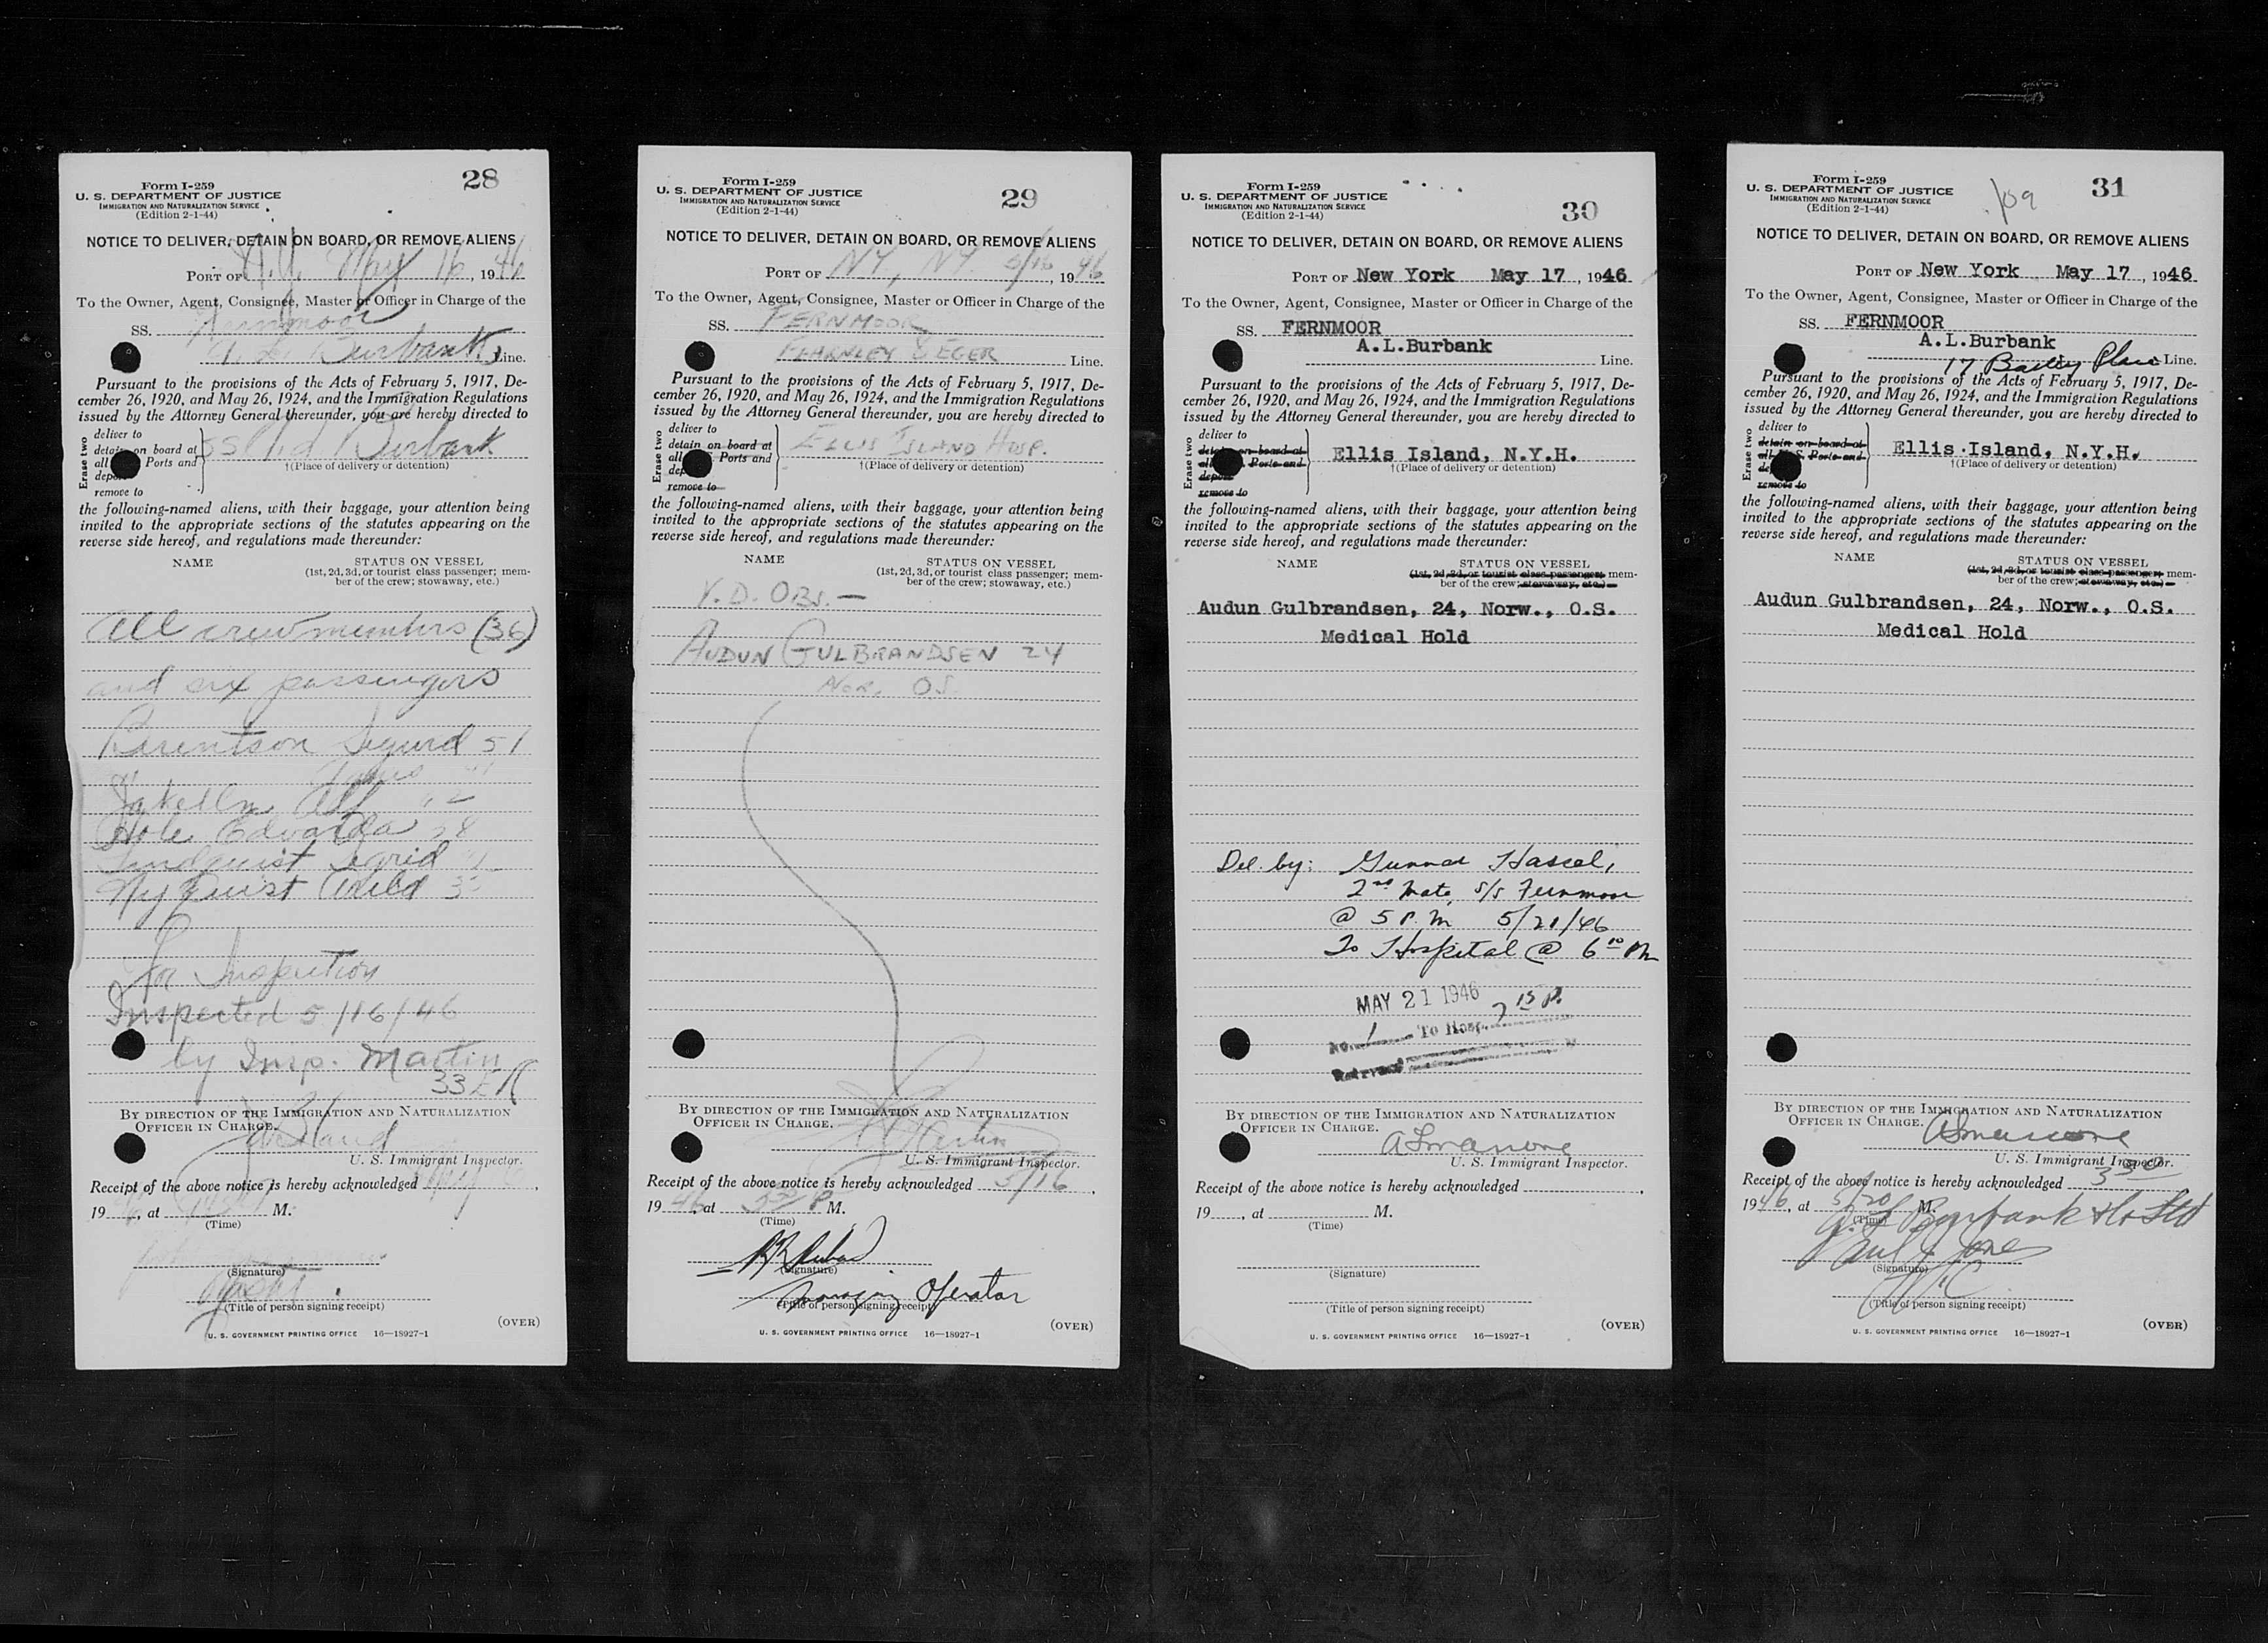 28
Form I-259
U. S. DEPARTMENT OF JUSTICE
IMMIGRATION AND NATURALIZATION SERVICE
(Edition 2-1-44)
NOTICE TO DELIVER, DETAIN ON BOARD, OR REMOVE ALIENS
PORT OF N.Y. May 16, 1946
To the Owner, Agent, Consignee, Master or Officer in Charge of the
SS. Fernmoor
A. L. Burbank Line.
Pursuant to the provisions of the Acts of February 5, 1917, De-
cember 26, 1920, and May 26, 1924, and the Immigration Regulations
issued by the Attorney General thereunder, you are hereby directed to
Erase two
deliver to
detain on board at
all Ports and
remove to
Burbank
†(Place of delivery or detention)
the following-named aliens, with their baggage, your attention being
invited to the appropriate sections of the statutes appearing on the
reverse side hereof, and regulations made thereunder:
NAME STATUS ON VESSEL
(1st, 2d, 3d, or tourist class passenger; mem-
ber of the crew; stowaway, etc.)
All crewmembers (36)
and six passengers
Sigurd 51
Alf
Hole Edvarda 28
Lindquist Sigrid
Nyquist
for Inspection
Inspected 5/16/46
by Insp. Martin
BY DIRECTION OF THE IMMIGRATION AND NATURALIZATION
OFFICER IN CHARGE.
U. S. Immigrant Inspector.
Receipt of the above notice is hereby acknowledged
19 , at M.
(Time)
(Signature)
(Title of person signing receipt)
(OVER)
U. S. GOVERNMENT PRINTING OFFICE 16—18927-1
29
Form I-259
U. S. DEPARTMENT OF JUSTICE
IMMIGRATION AND NATURALIZATION SERVICE
(Edition 2-1-44)
NOTICE TO DELIVER, DETAIN ON BOARD, OR REMOVE ALIENS
PORT OF NY, NY 5/16, 1946
To the Owner, Agent, Consignee, Master or Officer in Charge of the
SS. FERNMOOR
FEARNLEY & EGER Line.
Pursuant to the provisions of the Acts of February 5, 1917, De-
cember 26, 1920, and May 26, 1924, and the Immigration Regulations
issued by the Attorney General thereunder, you are hereby directed to
Erase two
deliver to
detain on board at
all Ports and
remove to
ELLIS ISLAND HOSP.
†(Place of delivery or detention)
the following-named aliens, with their baggage, your attention being
invited to the appropriate sections of the statutes appearing on the
reverse side hereof, and regulations made thereunder:
NAME STATUS ON VESSEL
(1st, 2d, 3d, or tourist class passenger; mem-
ber of the crew; stowaway, etc.)
V.D. OBS. —
AUDUN GULBRANDSEN 24
NOR. OS.
BY DIRECTION OF THE IMMIGRATION AND NATURALIZATION
OFFICER IN CHARGE.
Martin
U. S. Immigrant Inspector.
Receipt of the above notice is hereby acknowledged 5/16,
1946, at 5 30 P M.
(Time)
(Signature)
Managing Operator
(Title of person signing receipt)
(OVER)
U. S. GOVERNMENT PRINTING OFFICE 16—18927-1
30
Form I-259
U. S. DEPARTMENT OF JUSTICE
IMMIGRATION AND NATURALIZATION SERVICE
(Edition 2-1-44)
NOTICE TO DELIVER, DETAIN ON BOARD, OR REMOVE ALIENS
PORT OF New York May 17, 1946
To the Owner, Agent, Consignee, Master or Officer in Charge of the
SS. FERNMOOR
A.L.Burbank
Line.
Pursuant to the provisions of the Acts of February 5, 1917, De-
cember 26, 1920, and May 26, 1924, and the Immigration Regulations
issued by the Attorney General thereunder, you are hereby directed to
Erase two
deliver to
detain on board at
all U.S. Ports and
remove to
Ellis Island, N.Y.H.
†(Place of delivery or detention)
the following-named aliens, with their baggage, your attention being
invited to the appropriate sections of the statutes appearing on the
reverse side hereof, and regulations made thereunder:
NAME STATUS ON VESSEL
(1st, 2d, 3d, or tourist class passenger; mem-
ber of the crew; stowaway, etc.)
Audun Gulbrandsen, 24, Norw., O.S.
Medical Hold
Del. by: Gunnar Hassel,
2nd Mate, S/S Fernmoor
@ 5 P.M 5/21/46
To Hospital @ 6 10 PM
MAY 21 1946
No. 1 To Hosp. 7 15 P.
BY DIRECTION OF THE IMMIGRATION AND NATURALIZATION
OFFICER IN CHARGE.
U. S. Immigrant Inspector.
Receipt of the above notice is hereby acknowledged
19 , at M.
(Time)
(Signature)
(Title of person signing receipt)
(OVER)
U. S. GOVERNMENT PRINTING OFFICE 16—18927-1
31
Form I-259
U. S. DEPARTMENT OF JUSTICE
IMMIGRATION AND NATURALIZATION SERVICE
(Edition 2-1-44)
NOTICE TO DELIVER, DETAIN ON BOARD, OR REMOVE ALIENS
PORT OF New York May 17, 1946
To the Owner, Agent, Consignee, Master or Officer in Charge of the
SS. FERNMOOR
A.L.Burbank
17 Battery Place Line.
Pursuant to the provisions of the Acts of February 5, 1917, De-
cember 26, 1920, and May 26, 1924, and the Immigration Regulations
issued by the Attorney General thereunder, you are hereby directed to
Erase two
deliver to
detain on board at
all U.S. Ports and
remove to
Ellis Island, N.Y.H.
†(Place of delivery or detention)
the following-named aliens, with their baggage, your attention being
invited to the appropriate sections of the statutes appearing on the
reverse side hereof, and regulations made thereunder:
NAME STATUS ON VESSEL
(1st, 2d, 3d, or tourist class passenger; mem-
ber of the crew; stowaway, etc.)
Audun Gulbrandsen, 24, Norw., O.S.
Medical Hold
BY DIRECTION OF THE IMMIGRATION AND NATURALIZATION
OFFICER IN CHARGE.
U. S. Immigrant Inspector.
Receipt of the above notice is hereby acknowledged 3 30
1946, at 5/20 M.
(Time)
A. L. Burbank & Co Ltd
Paul J Jones
(Signature)
(Title of person signing receipt)
(OVER)
U. S. GOVERNMENT PRINTING OFFICE 16—18927-1